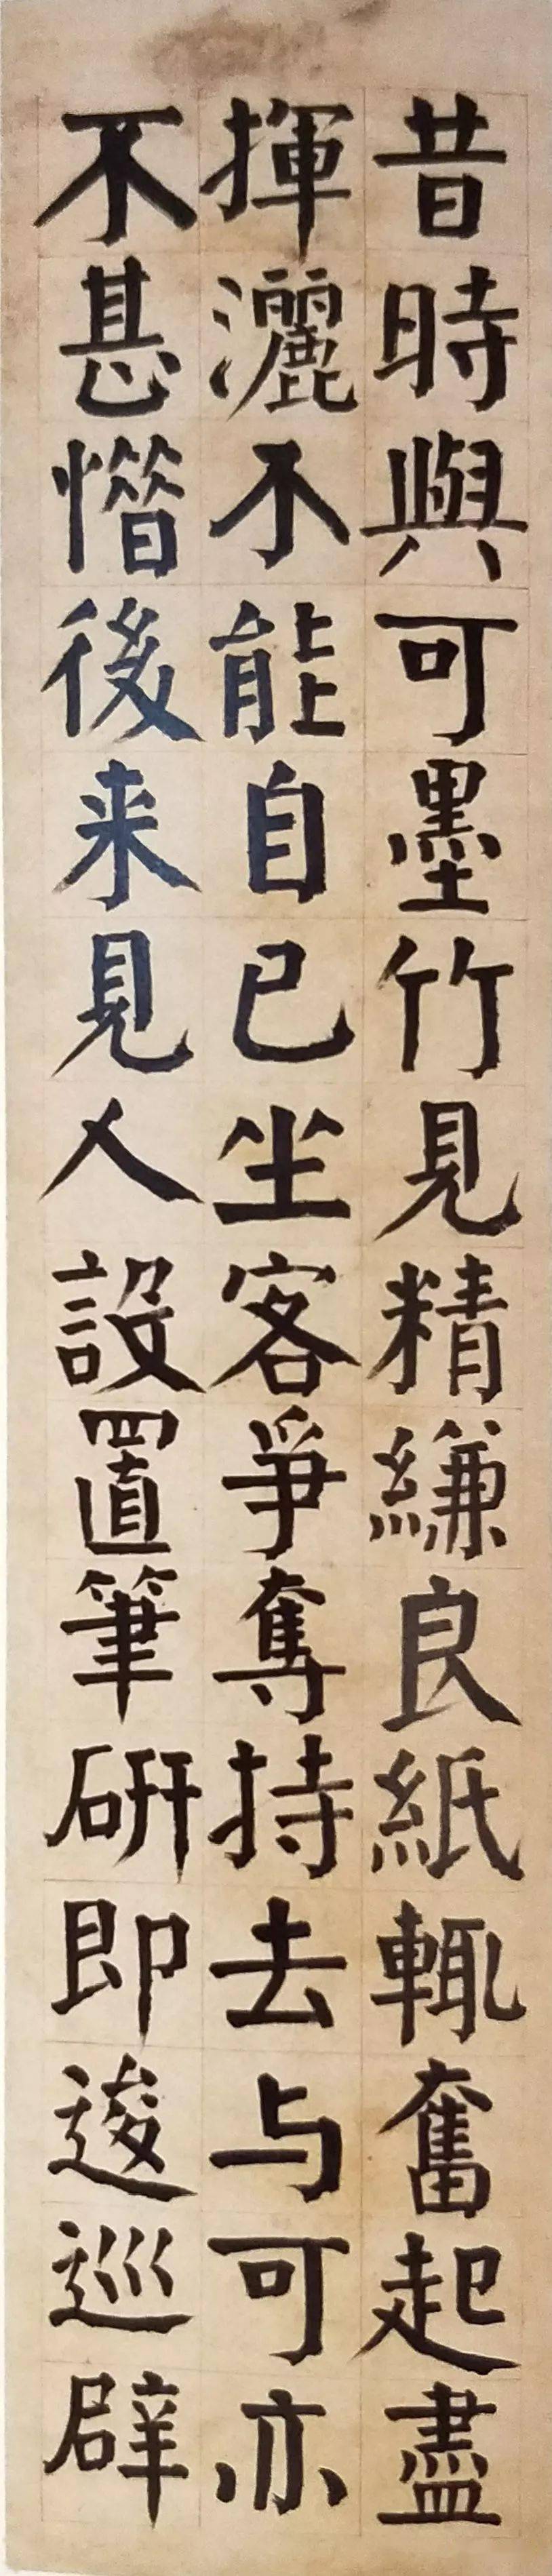 昔時與可墨竹見精縑良紙輒奮起盡
揮灑不能自已坐客爭奪持去与可亦
不甚惜後来見人設置筆硏即逡巡辟